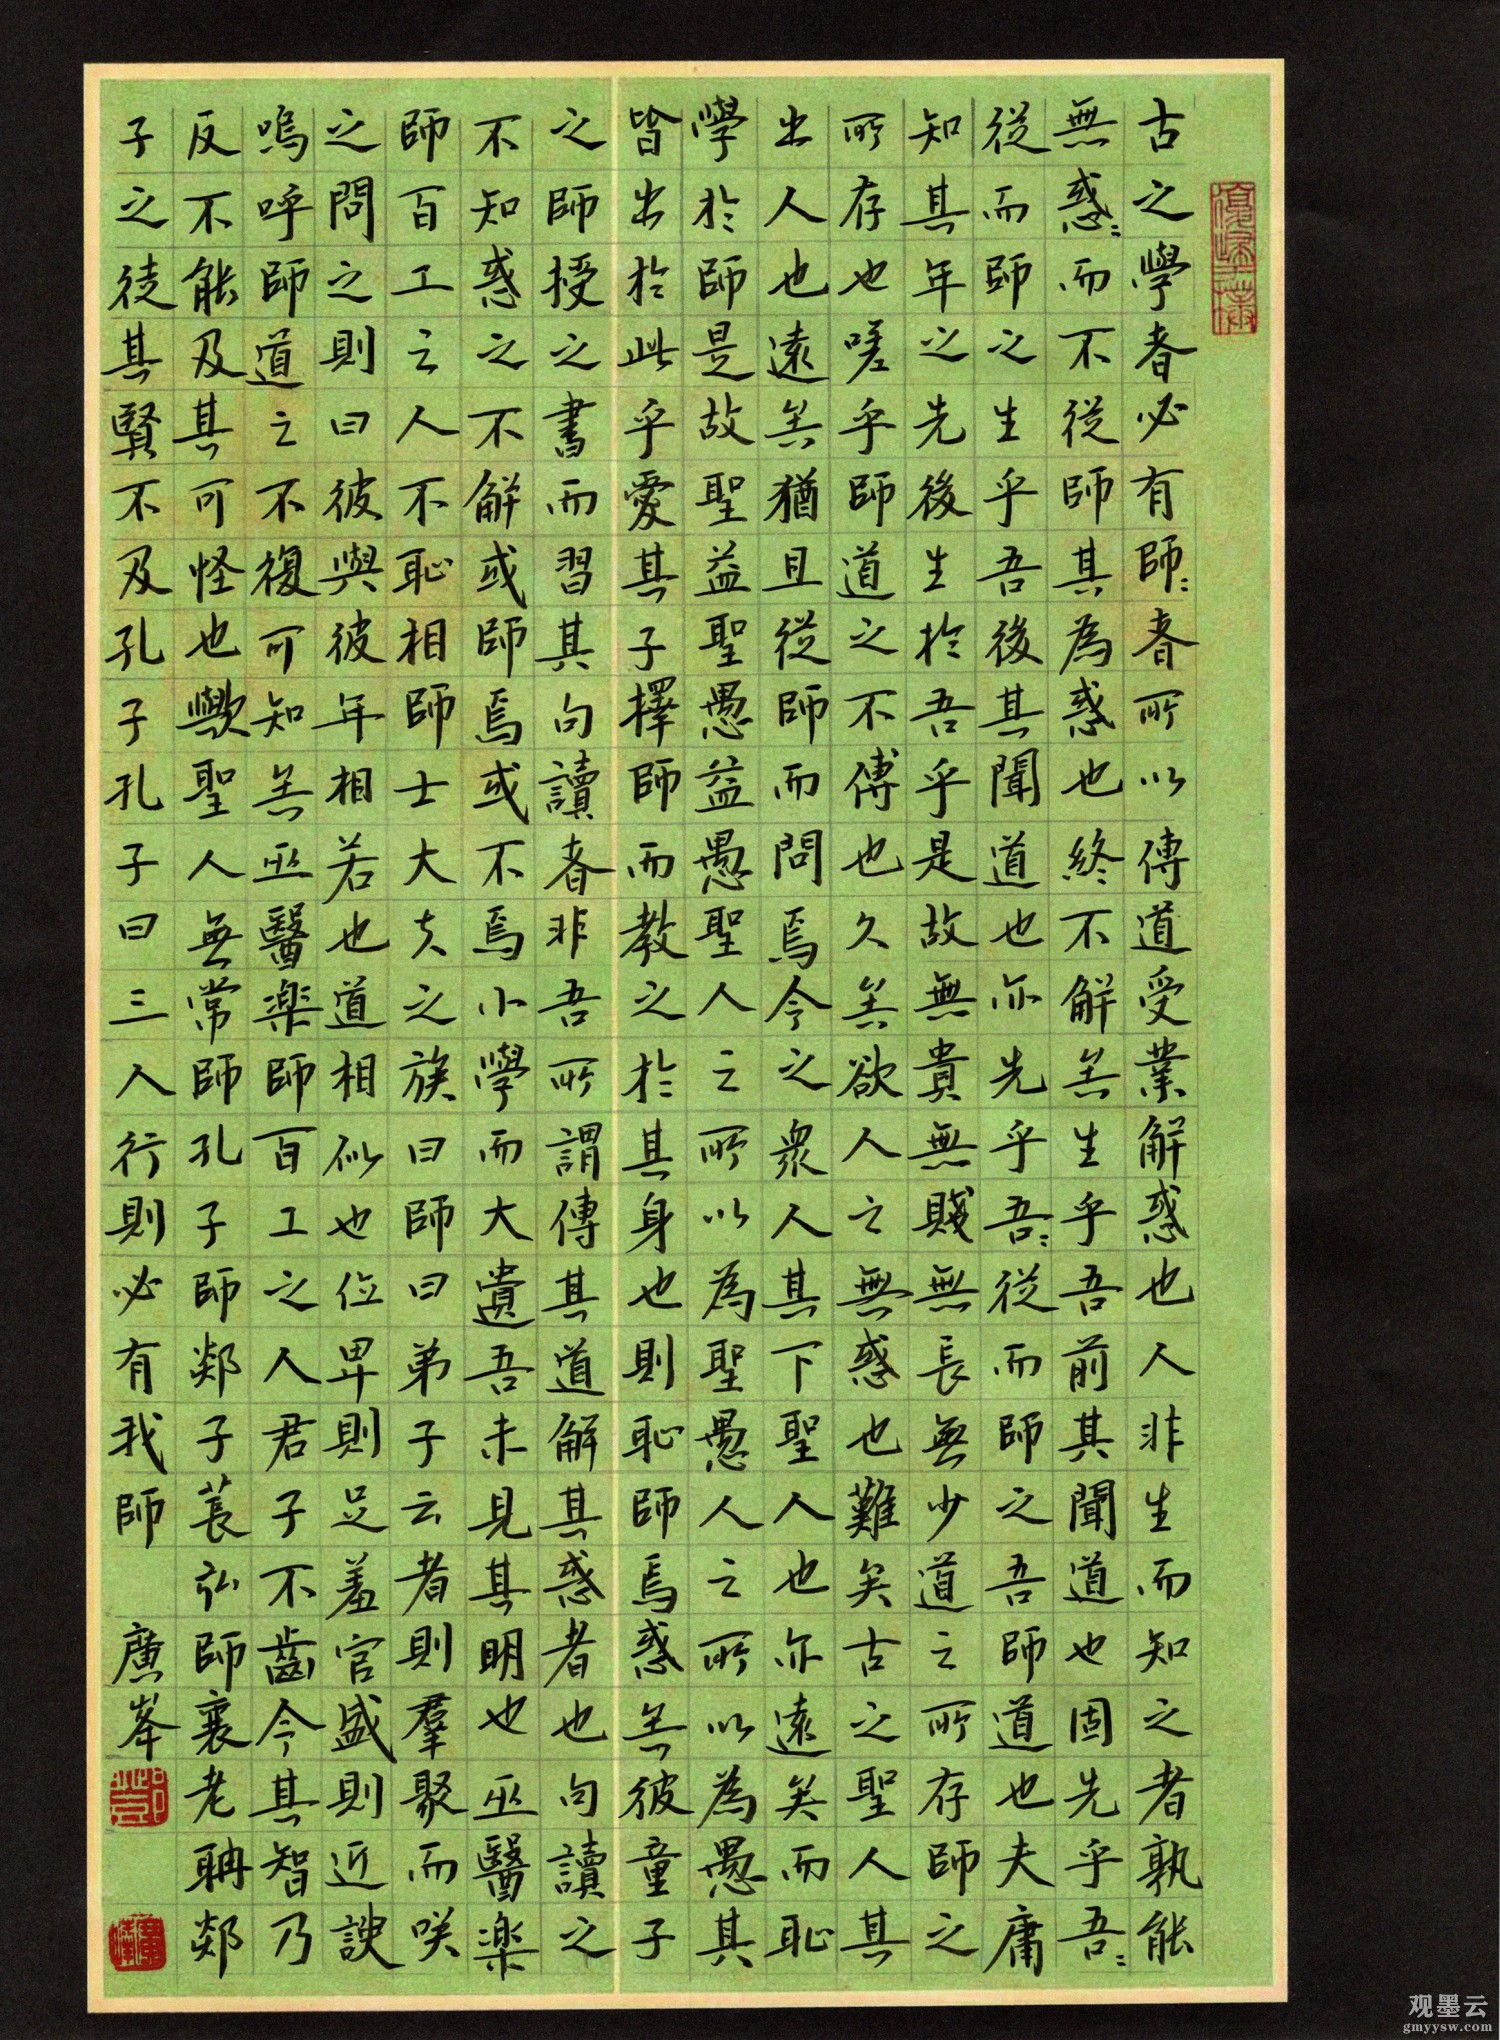 古之學者必有師〻者所以傳道受業解惑也人非生而知之者孰能
無惑〻而不從師其為惑也終不解矣生乎吾前其聞道也固先乎吾〻
從而師之生乎吾後其聞道也亦先乎吾〻從而師之吾師道也夫庸
知其年之先後生於吾乎是故無貴無賤無長無少道之所存師之
所存也嗟乎師道之不傳也久矣欲人之無惑也難矣古之聖人其
出人也遠矣猶且從師而問焉今之眾人其下聖人也亦遠矣而恥
學於師是故聖益聖愚益愚聖人之所以為聖愚人之所以為愚其
皆出於此乎愛其子擇師而教之於其身也則恥師焉惑矣彼童子
之師授之書而習其句讀者非吾所謂傳其道解其惑者也句讀之
不知惑之不解或師焉或不焉小學而大遺吾未見其明也巫醫楽
師百工之人不恥相師士大夫之族曰師曰弟子云者則羣聚而咲
之問之則曰彼與彼年相若也道相似也位卑則足羞官盛則近諛
嗚呼師道之不復可知矣巫醫楽師百工之人君子不齒今其智乃
反不能及其可怪也歟聖人無常師孔子師郯子萇弘師襄老聃郯
子之徒其賢不及孔子孔子曰三人行則必有我師 廣峯
观墨云
gmyysw.com